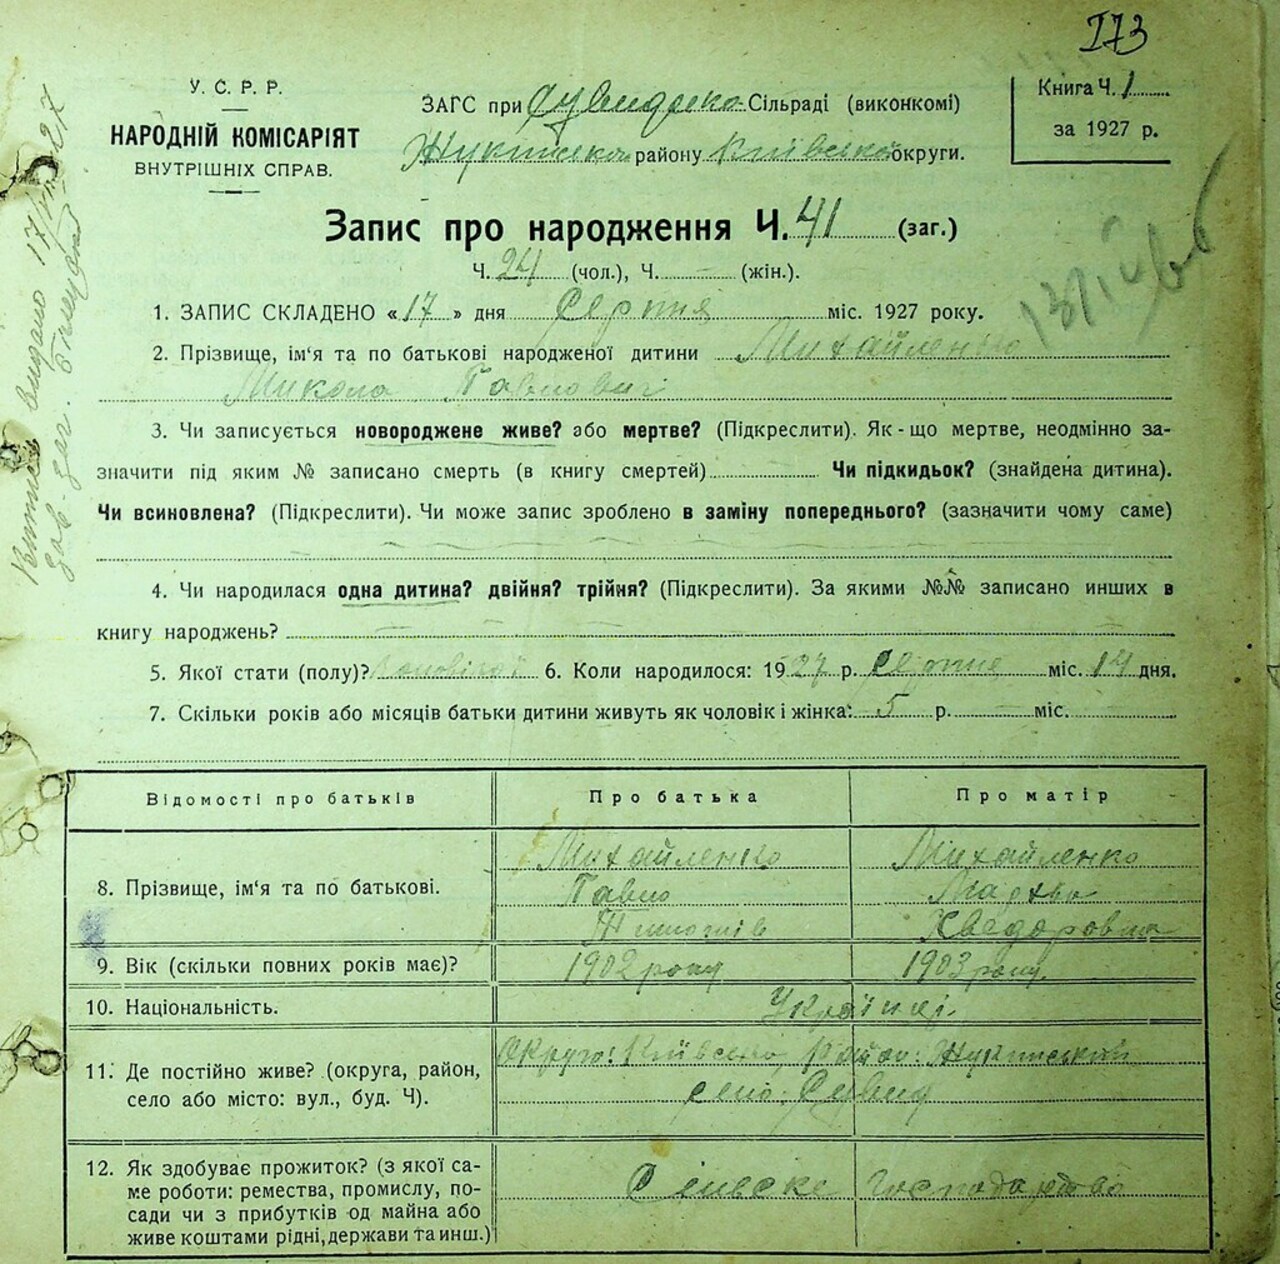 173
У. С. Р. Р.
НАРОДНІЙ КОМІСАРІЯТ
ВНУТРІШНІХ СПРАВ.
ЗАГС при Сувидсько Сільраді (виконкомі)
Жукинська району Київська округи.
Книга Ч. 1
за 1927 р.
Запис про народження Ч. 41 (заг.)
Ч. 24 (чол.), Ч. — (жін.).
1. ЗАПИС СКЛАДЕНО «17» дня Серпня міс. 1927 року.
2. Прізвище, ім'я та по батькові народженої дитини Михайленко
Микола Павлович
3. Чи записується новороджене живе? або мертве? (Підкреслити). Як-що мертве, неодмінно за-
значити під яким № записано смерть (в книгу смертей) Чи підкидьок? (знайдена дитина).
Чи всиновлена? (Підкреслити). Чи може запис зроблено в заміну попереднього? (зазначити чому саме)
4. Чи народилася одна дитина? двійня? трійня? (Підкреслити). За якими №№ записано инших в
книгу народжень?
5. Якої стати (полу)? 6. Коли народилося: 1927 р. Серпня міс. 14 дня.
7. Скільки років або місяців батьки дитини живуть як чоловік і жінка: 5 р. — міс.
Відомості про батьків Про батька Про матір
8. Прізвище, ім'я та по батькові. Михайленко Михайленко
Павло Мархва
Хведоровна
9. Вік (скільки повних років має)? 1902 року 1903 року.
10. Національність. Українці.
11. Де постійно живе? (округа, район, село або місто: вул., буд. Ч). Округа: Київська, Район: Жукинський
село: Сувид
12. Як здобуває прожиток? (з якої са-
ме роботи: ремества, промислу, по-
сади чи з прибутків од майна або
живе коштами рідні, держави та инш.) Сільске Господарство
Витяг видано 17/VIII 27